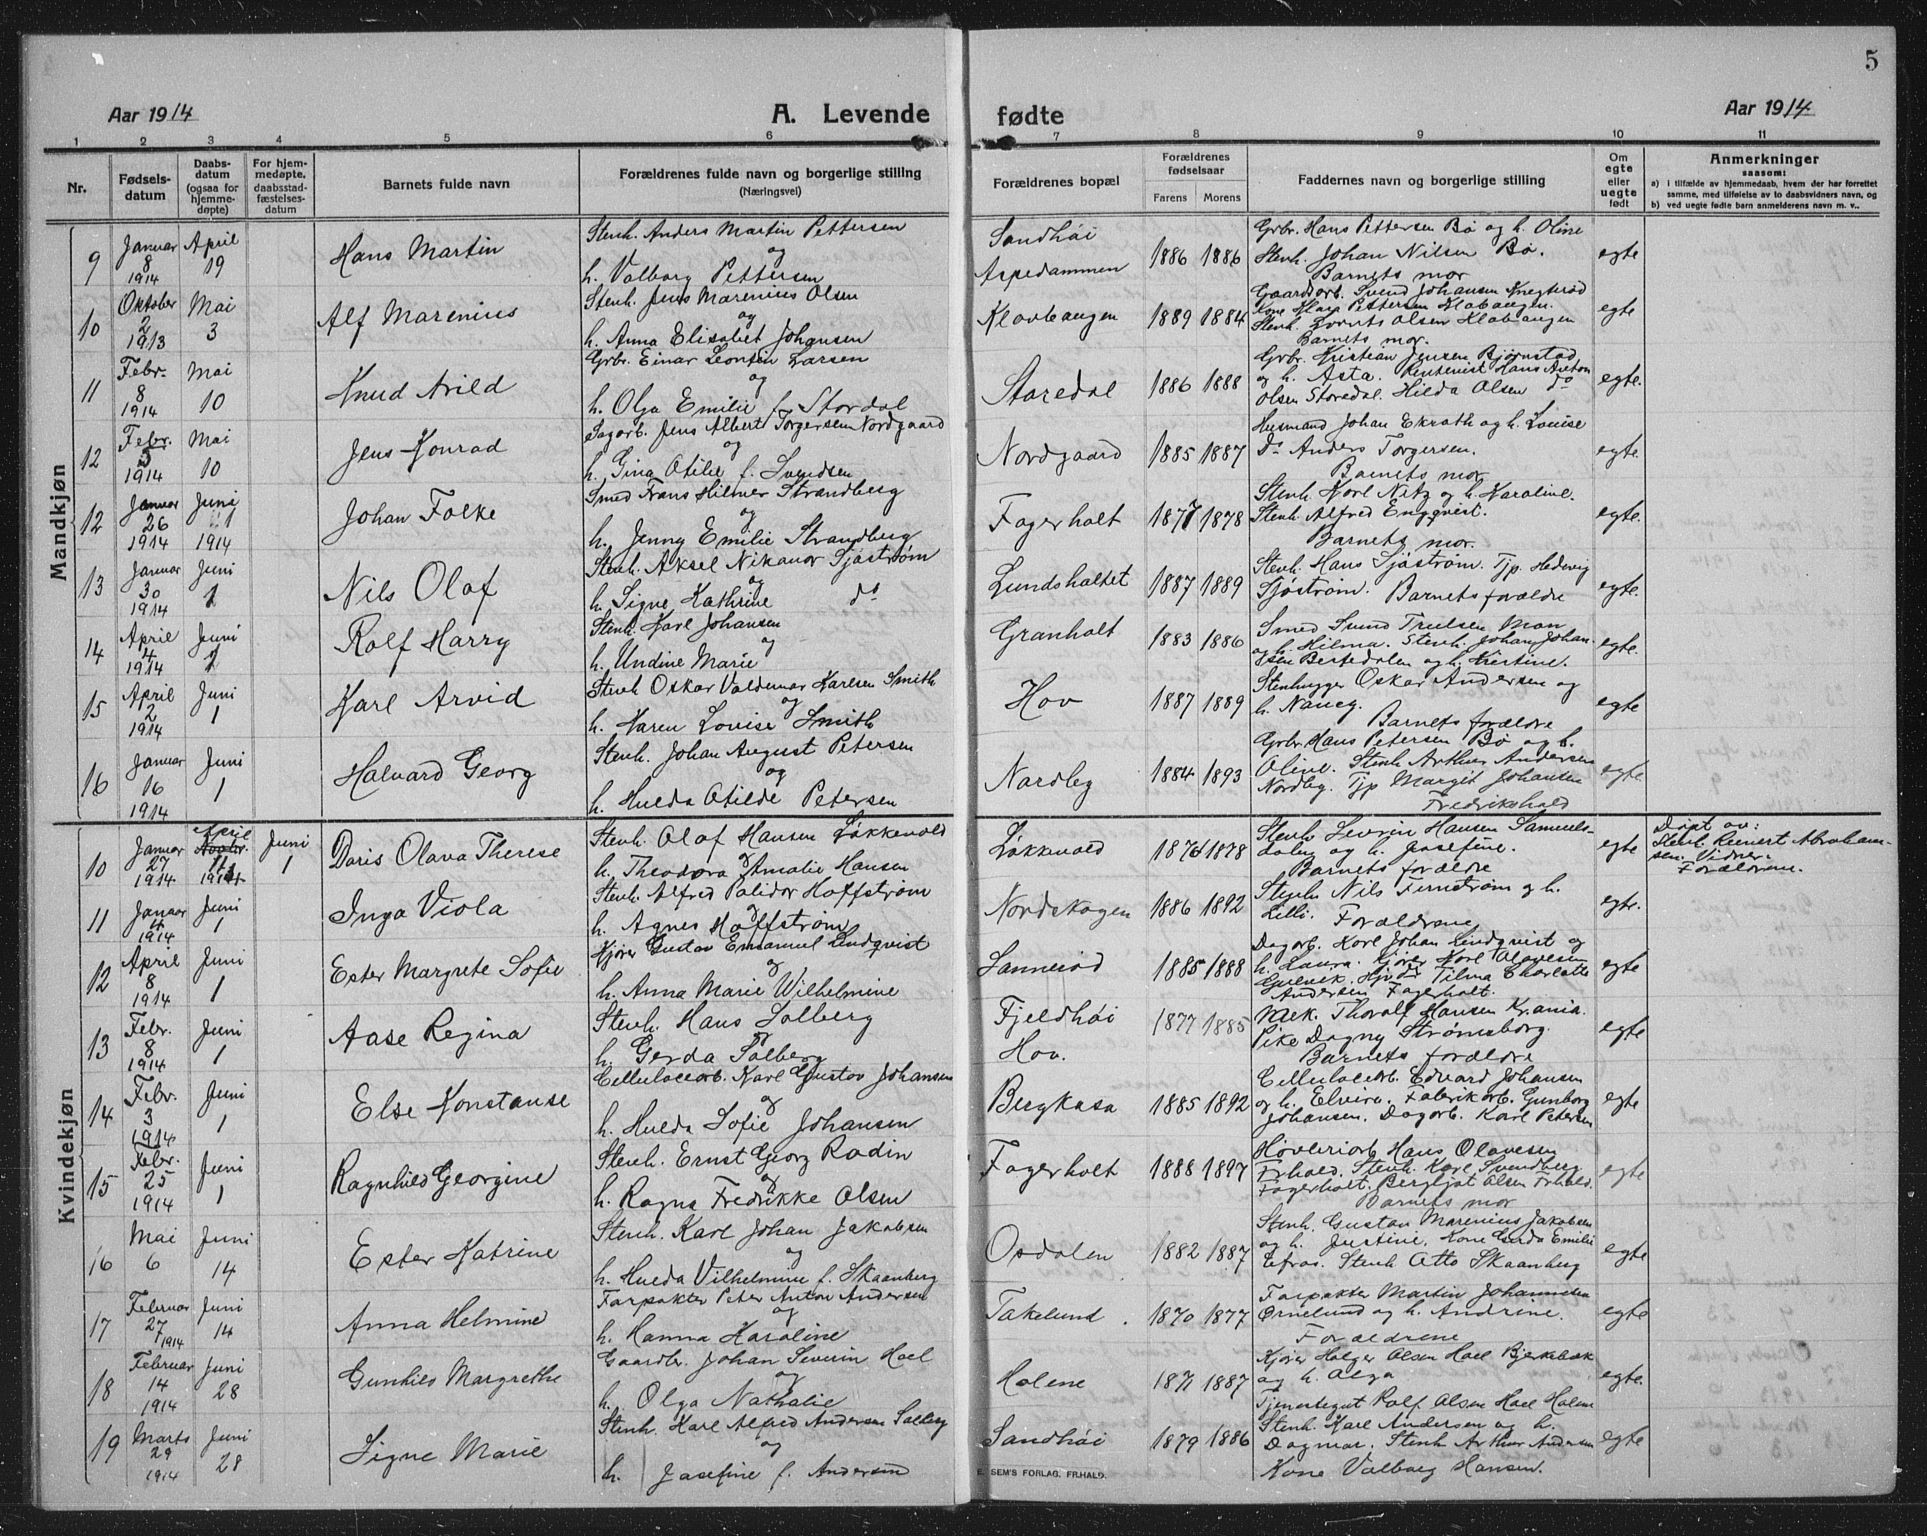 5
Aar 1914 A. Levende fødte Aar 1914
1 2 3 4 5 6 7 8 9 10 11
Nr.
Fødsels-
datum
Daabs-
datum
(ogsaa for
hjemme-
døpte)
For hjem-
medøpte,
daabsstad-
fæstelses-
datum
Barnets fulde navn
Forældrenes fulde navn og borgerlige stilling
(Næringsvei)
Forældrenes bopæl
Forældrenes
fødselsaar
Farens Morens
Faddernes navn og borgerlige stilling
Om
egte
eller
uegte
født
Anmerkninger
saasom:
a) i tilfælde av hjemmedaab, hvem der har forrettet
samme, med tilføielse av to daabsvidners navn, og
b) ved uegte fødte barn anmelderens navn m. v..
Mandkjøn
9
Januar
8
1914
April
19
Hans Martin
Stenh. Anders Martin Pettersen
og
h. Valborg Pettersen
Sandhöi
Aspedammen
1886 1886
Grbr. Hans Pettersen Bø og h. Oline
Stenh. Johan Nilsen Bø.
Barnets mor
egte
10
Oktober
2
1913
Mai
3
Alf Marenius
Stenh. Jens Marenius Olsen
og
h. Anna Elisabet Johansen
Klovbaugen
1889 1884
Gaardarb. Svend Johansen
Kone Pettersen Klobaugen.
Stenh. Olsen Klobaugen
Barnets mor.
egte
11
Febr.
8
1914
Mai
10
Knud Arild
Grbr. Einar Leontin Larsen
og
h. Olga Emilie f. Stordal
Staredal
1886 1888
Grbr. Kristian Jensen Bjørnstad
og h. Asta. Rentenist Hans Anton
Olsen Storedal. Hilda Olsen do
egte.
12
Febr.
5
1914
Mai
10
Jens Konrad
Sagarb. Jens Albert Torgersen Nordgaard
og
h. Gina Otilie f. Svendsen
Nordgaard
1885 1887
Husmand Johan Ekrath og h. Louise
do Anders Torgersen.
Barnets mor
egte.
12
Januar
26
1914
Juni
1
1914
Johan Folke
Smed Frans Hilmer Strandberg
og
h. Jenny Emilie Strandberg
Fagerholt
1877 1878
Stenh. Karl Nitz og h. Karoline.
Stenh. Alfred Engqvist.
Barnets mor.
egte.
13
Januar
30
1914
Juni
1
Nils Olaf
Stenh. Aksel Nikanor Sjöström
og
h. Signe Kathrine do
Lundsholtet
1887 1889
Stenh. Hans Sjöström. Tjp. Hedevig
Sjöström. Barnets forældre
egte.
14
April
4
1914
Juni
1
Rolf Harry
Stenh. Karl Johansen
og
h. Undine Marie
Granholt
1883 1886
Smed Svend Trulsen Mon
og h. Hilma. Stenh. Johan Johan-
sen Bergedalen og h. Kirstine.
egte.
15
April
2
1914
Juni
1
Karl Arvid
Stenh Oskar Valdemar Karlsen Smith
og
h. Karen Lovise Smith
Hov
1887 1889
Stenhugger Oskar Andersen og
h. Nancy.
Barnets forældre
egte
16
Januar
16
1914
Juni
1
Halvard Georg
Stenh. Johan August Petersen
og
h. Hulda Otilde Petersen
Nordby
1884 1893
Grbr. Hans Petersen Bø og h.
Oline. Stenh Arthur Andersen
Nordby. Tjp Margit Johansen
Fredrikshald
egte.
Kvindekjøn
10
Januar
27
1914
April
1914
Juni
1
Doris Olava Therese
Stenh. Olaf Hansen Løkkevold
og
h. Theodora Amalie Hansen
Løkkevold
1876 1878
Stenh. Severin Hansen Samuels-
dalen og h. Josefine.
Barnets forældre
egte
Døpt av:
Stenh. Reinert Abraham-
sen. Vidner:
Forældrene.
11
Januar
4
1914
Juni
1
Inga Viola
Stenh. Alfred Palidor Hoffström
og
h. Agnes Hoffström
Nordskogen
1886 1892
Stenh Nils Fernström og h.
Lilli. Forældrene
egte.
12
April
8
1914
Juni
1
Ester Margrete Sofie
Kjører Gustav Emanuel Lindqvist
og
h. Anna Marie Wilhelmine
Sannerød
1885 1888
Dagarb. Karl Johan Lindqvist og
h. Laura. Kjører Karl Olavesen
Tilma Charlotte
Andersen Fagerholt.
egte
13
Febr.
8
1914
Juni
1
Aase Regina
Stenh. Hans Solberg
og
h. Gerda Solberg
Fjeldhöi
Hov.
1877 1885
Mek. Thoralf Hansen Kr.ania.
Pike Dagny Strømsborg.
Barnets forældre
egte
14
Febr.
3
1914
Juni
1
Else Konstanse
Cellulosearb. Karl Gustav Johansen
og
h. Hulda Sofie Johansen
Bergkasa
1885 1892
Cellulosearb. Edvard Johansen
og h. Elvira. Fabrikarb. Gunborg
Johansen. Dagarb. Karl Petersen
egte
15
Febr.
25
1914
Juni
1
Ragnhild Georgine
Stenh. Ernst Georg Rodin
og
h. Ragna Fredrikke Olsen
Fagerholt
1888 1897
Høvleriarb Hans Olavesen
Frhald. Stenh. Karl Svendberg
Fagerholt. Bergljot Olsen Frhald.
Barnets mor
egte
16
Mai
6
Juni
14
Ester Katrine
Stenh. Karl Johan Jakobsen
og
h. Hulda Vilhelmine f. Skaanberg
Opdalen
1882 1887
Stenh. Gustav Marenius Jakobsen
og h. Justine. Kone Gerda Emilie
Stenh Otto Skaanberg
egte
17
Februar
27
1914
Juni
14
Anna Helmine
Forpakter Peter Anton Andersen
og
h. Hanna Karoline
Takelund.
1870 1877
Forpakter Martin Johannesen
Ørnelund og h. Andrine.
Forældrene
egte
18
Februar
14
1914
Juni
28
Gunhild Margrethe
Gaardbr. Johan Severin Hoel
og
h. Olga Nathalie
Holene
1871 1887
Kjører Holger Olsen Hoel Bjerkebæk
og h. Olga
Tjenestegut Rolf Olsen Hoel Holene
egte.
19
Marts
29
1914
Juni
28
Signe Marie
Stenh. Karl Alfred Andersen Solberg
og
h. Josefine f. Andersen
Sandhöi
1879 1886
Stenh. Karl Andersen og h.
Dagmar. Stenh Arthur Andersen
Kone Valborg Hansen.
egte
E. SEM'S FORLAG. FR.HALD.